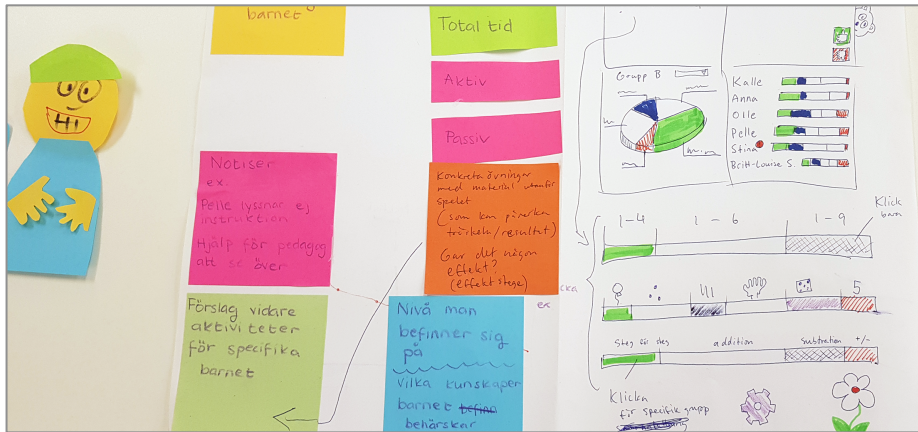 barnet
Total tid
Aktiv
Passiv
Notiser
ex.
Pelle lyssnar ej
instruktion
Hjälp för pedagog
att se över
Konkreta övningar
med material utanför
spelet
(som kan påverka
trärkeln/resultat)
Gav det någon
effekt?
(effekt stege)
Förslag vidare
aktiviteter
för specifika
barnet
Nivå man
befinner sig
på
vilka kunskaper
barnet
behärskar
cka
ex
Grupp B
Kalle
Anna
Olle
Pelle
Stina
Britt-Louise S.
Klick
barn
1-4
1-6
1-9
5
Steg för steg
addition
subtraktion
+/-
Klicka
för specifik grupp